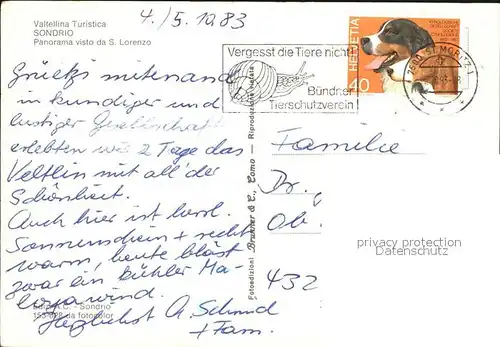 Valtellina Turistica
SONDRIO
Panorama visto da S. Lorenzo
4./5.10.83
Grüezi mitenand
in kundiger und
lustiger Gesellschaft
erlebten wir 2 Tage das
Veltlin mit all' der
Schönheit.
Auch hier ist herrl.
Sonnenschein + recht
warm, heute bläst
zwar ein kühler Ma-
lojawind.
Herzlichst A. Schmid
+ Fam.
- Sondrio
da fotocolor
Fotoedizioni Brunner & C., Como - Riproduzione
Vergesst die Tiere nicht!
Bündner
Tierschutzverein
HELVETIA
40
7500 ST. MORITZ 1
Familie
Dr.
Ob.
432
privacy protection
Datenschutz